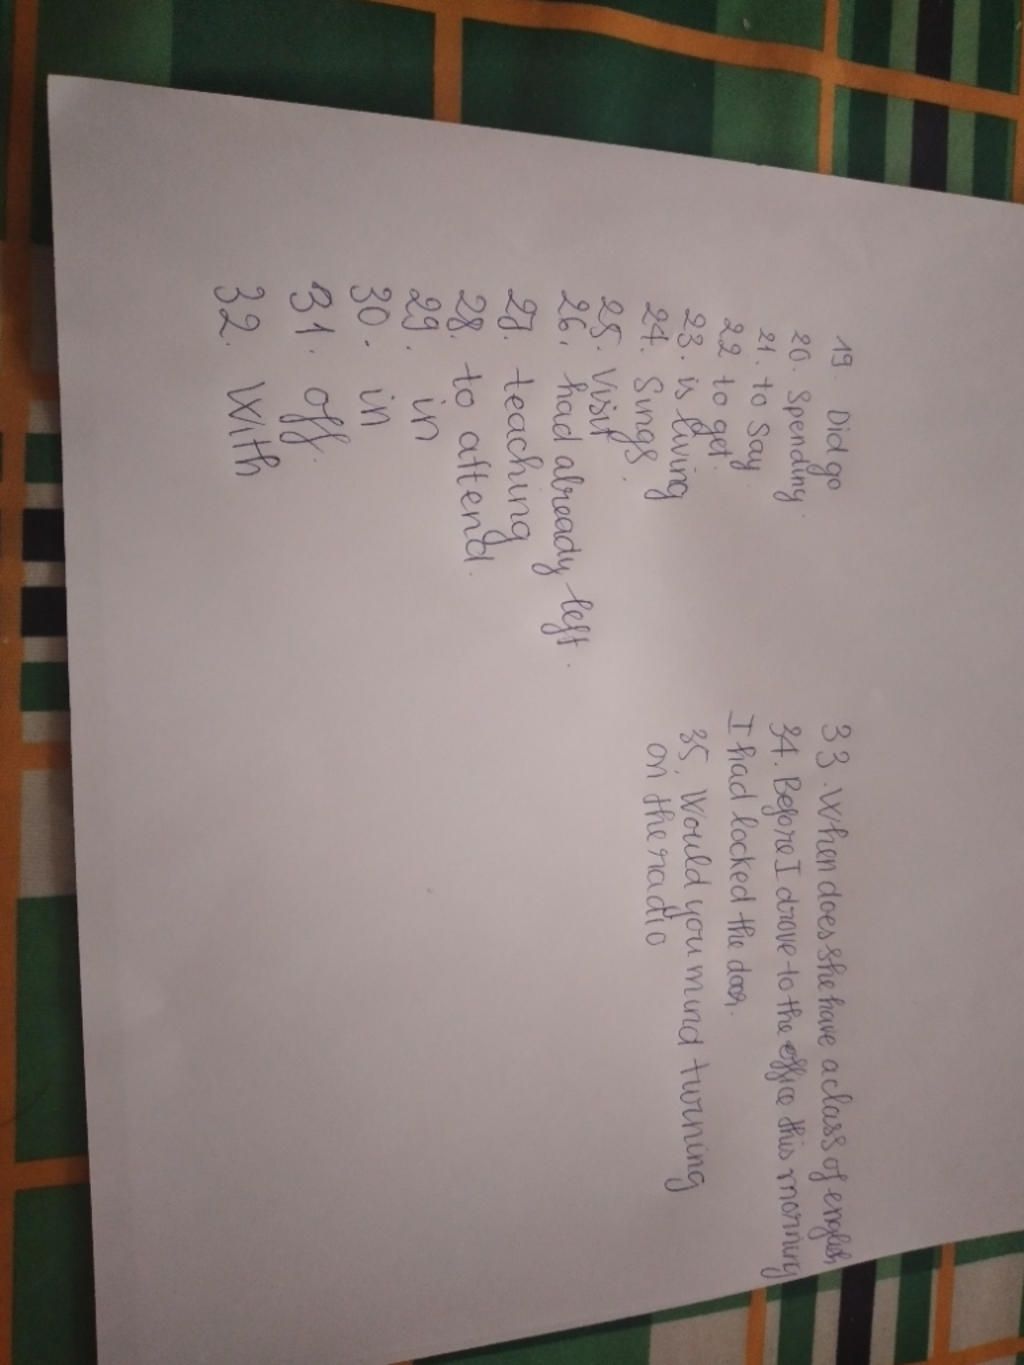 19. Did go
20. Spending.
21. to Say
22 to get.
23. is living
24. Sings.
25. Visit
26. had already left.
27. teaching
28. to attend.
29. in
30. in
31. off.
32. With
33. When does she have a class of english
34. Before I drove to the office this morning
I had locked the door.
35. Would you mind turning
on the radio